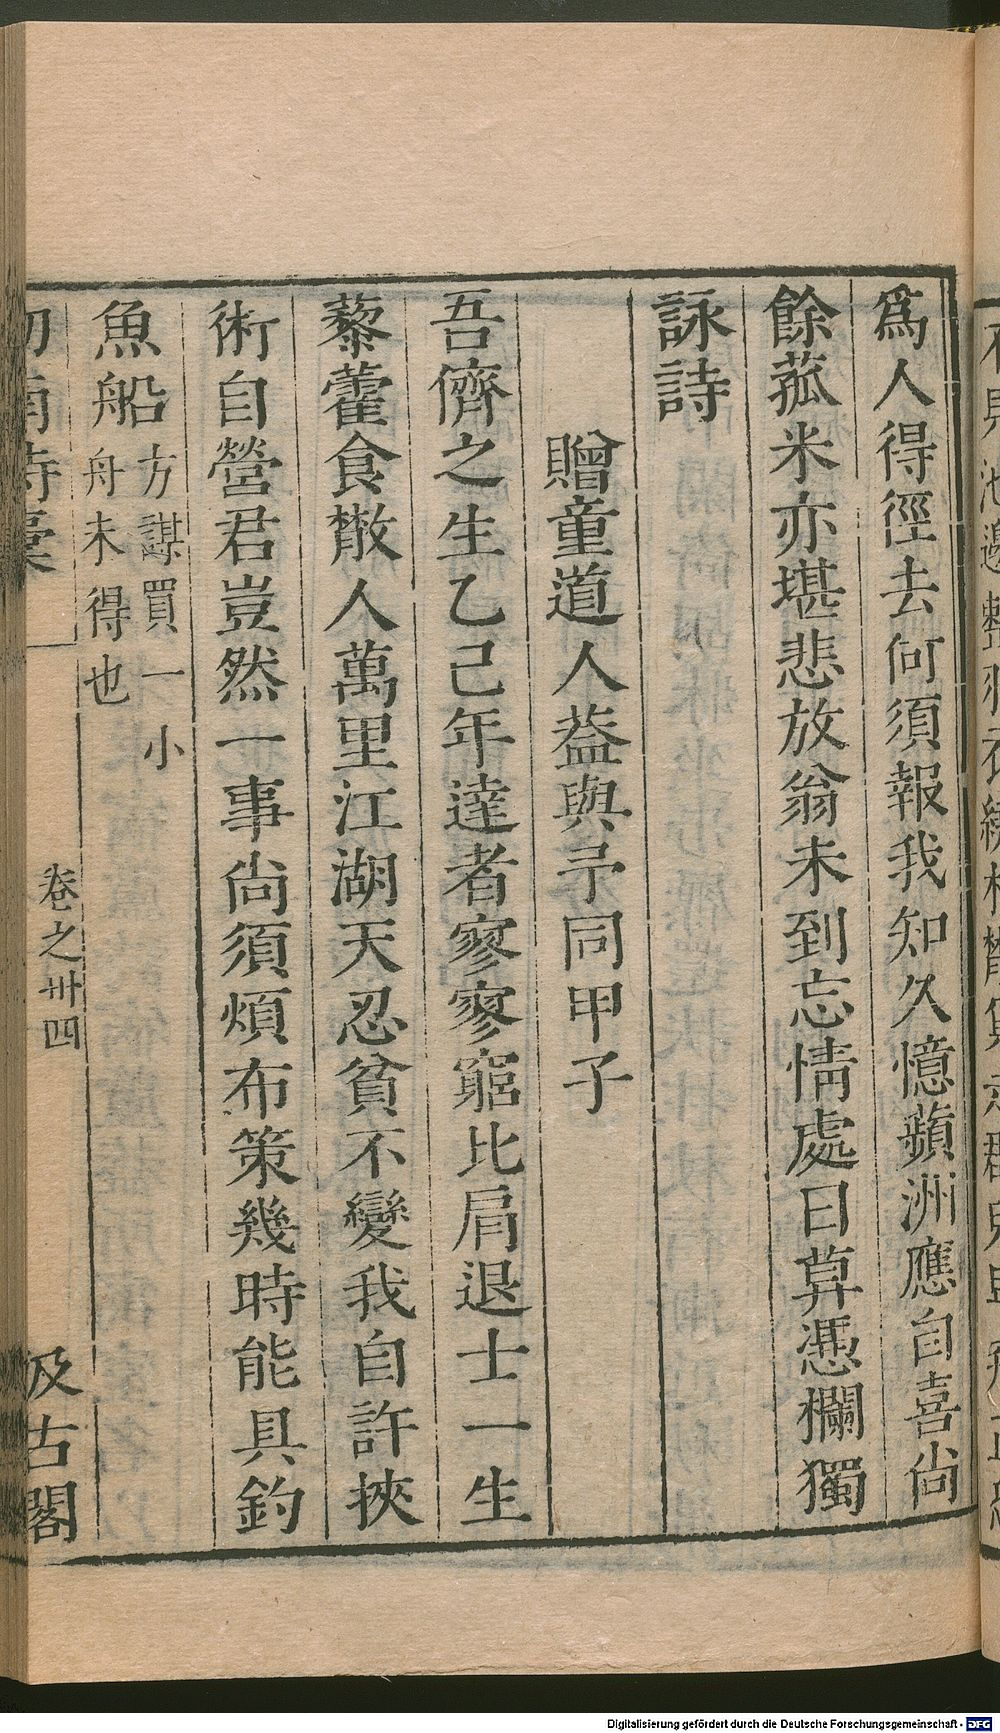 爲人得徑去何須報我知久憶蘋洲應自喜尙
餘菰米亦堪悲放翁未到忘情處日算憑欄獨
詠詩
贈童道人葢與予同甲子
吾儕之生乙己年達者寥寥窮比肩退士一生
藜藿食散人萬里江湖天忍貧不變我自許挾
術自營君豈然一事尙須煩布策幾時能具釣
魚船方謀買一小
舟未得也
劒南詩稾
卷之卅四
汲古閣
Digitalisierung gefördert durch die Deutsche Forschungsgemeinschaft - DFG